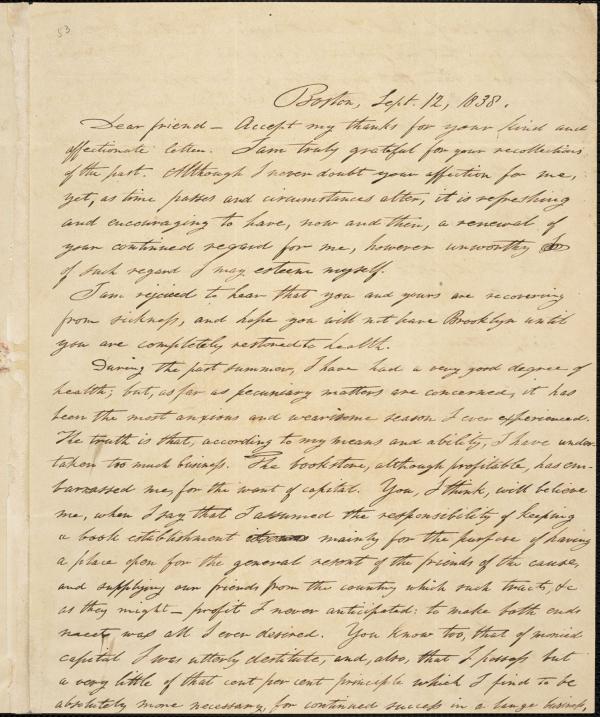 53
Boston, Sept. 12, 1838.
Dear friend — Accept my thanks for your kind and
affectionate letter. I am truly grateful for your recollections
of the past. Although I never doubt your affection for me,
yet, as time passes and circumstances alter, it is refreshing
and encouraging to have, now and then, a renewal of
your continued regard for me, however unworthy
of such regard I may esteem myself.
I am rejoiced to hear that you and yours are recovering
from sickness, and hope you will not leave Brooklyn until
you are completely restored to health.
During the past summer, I have had a very good degree of
health; but, as far as pecuniary matters are concerned, it has
been the most anxious and wearisome season I ever experienced.
The truth is that, according to my means and ability, I have under-
taken too much business. The bookstore, although profitable, has em-
barrassed me, for the want of capital. You, I think, will believe
me, when I say that I assumed the responsibility of keeping
a book establishment mainly for the purpose of having
a place open for the general resort of the friends of the cause,
and supplying our friends from the country which such tracts, &c
as they might — profit I never anticipated: to make both ends
meet, was all I ever desired. You know too, that of monied
capital I was utterly destitute, and, also, that I possess but
a very little of that cent per cent principle which I find to be
absolutely more necessary, for continued success in a large business,